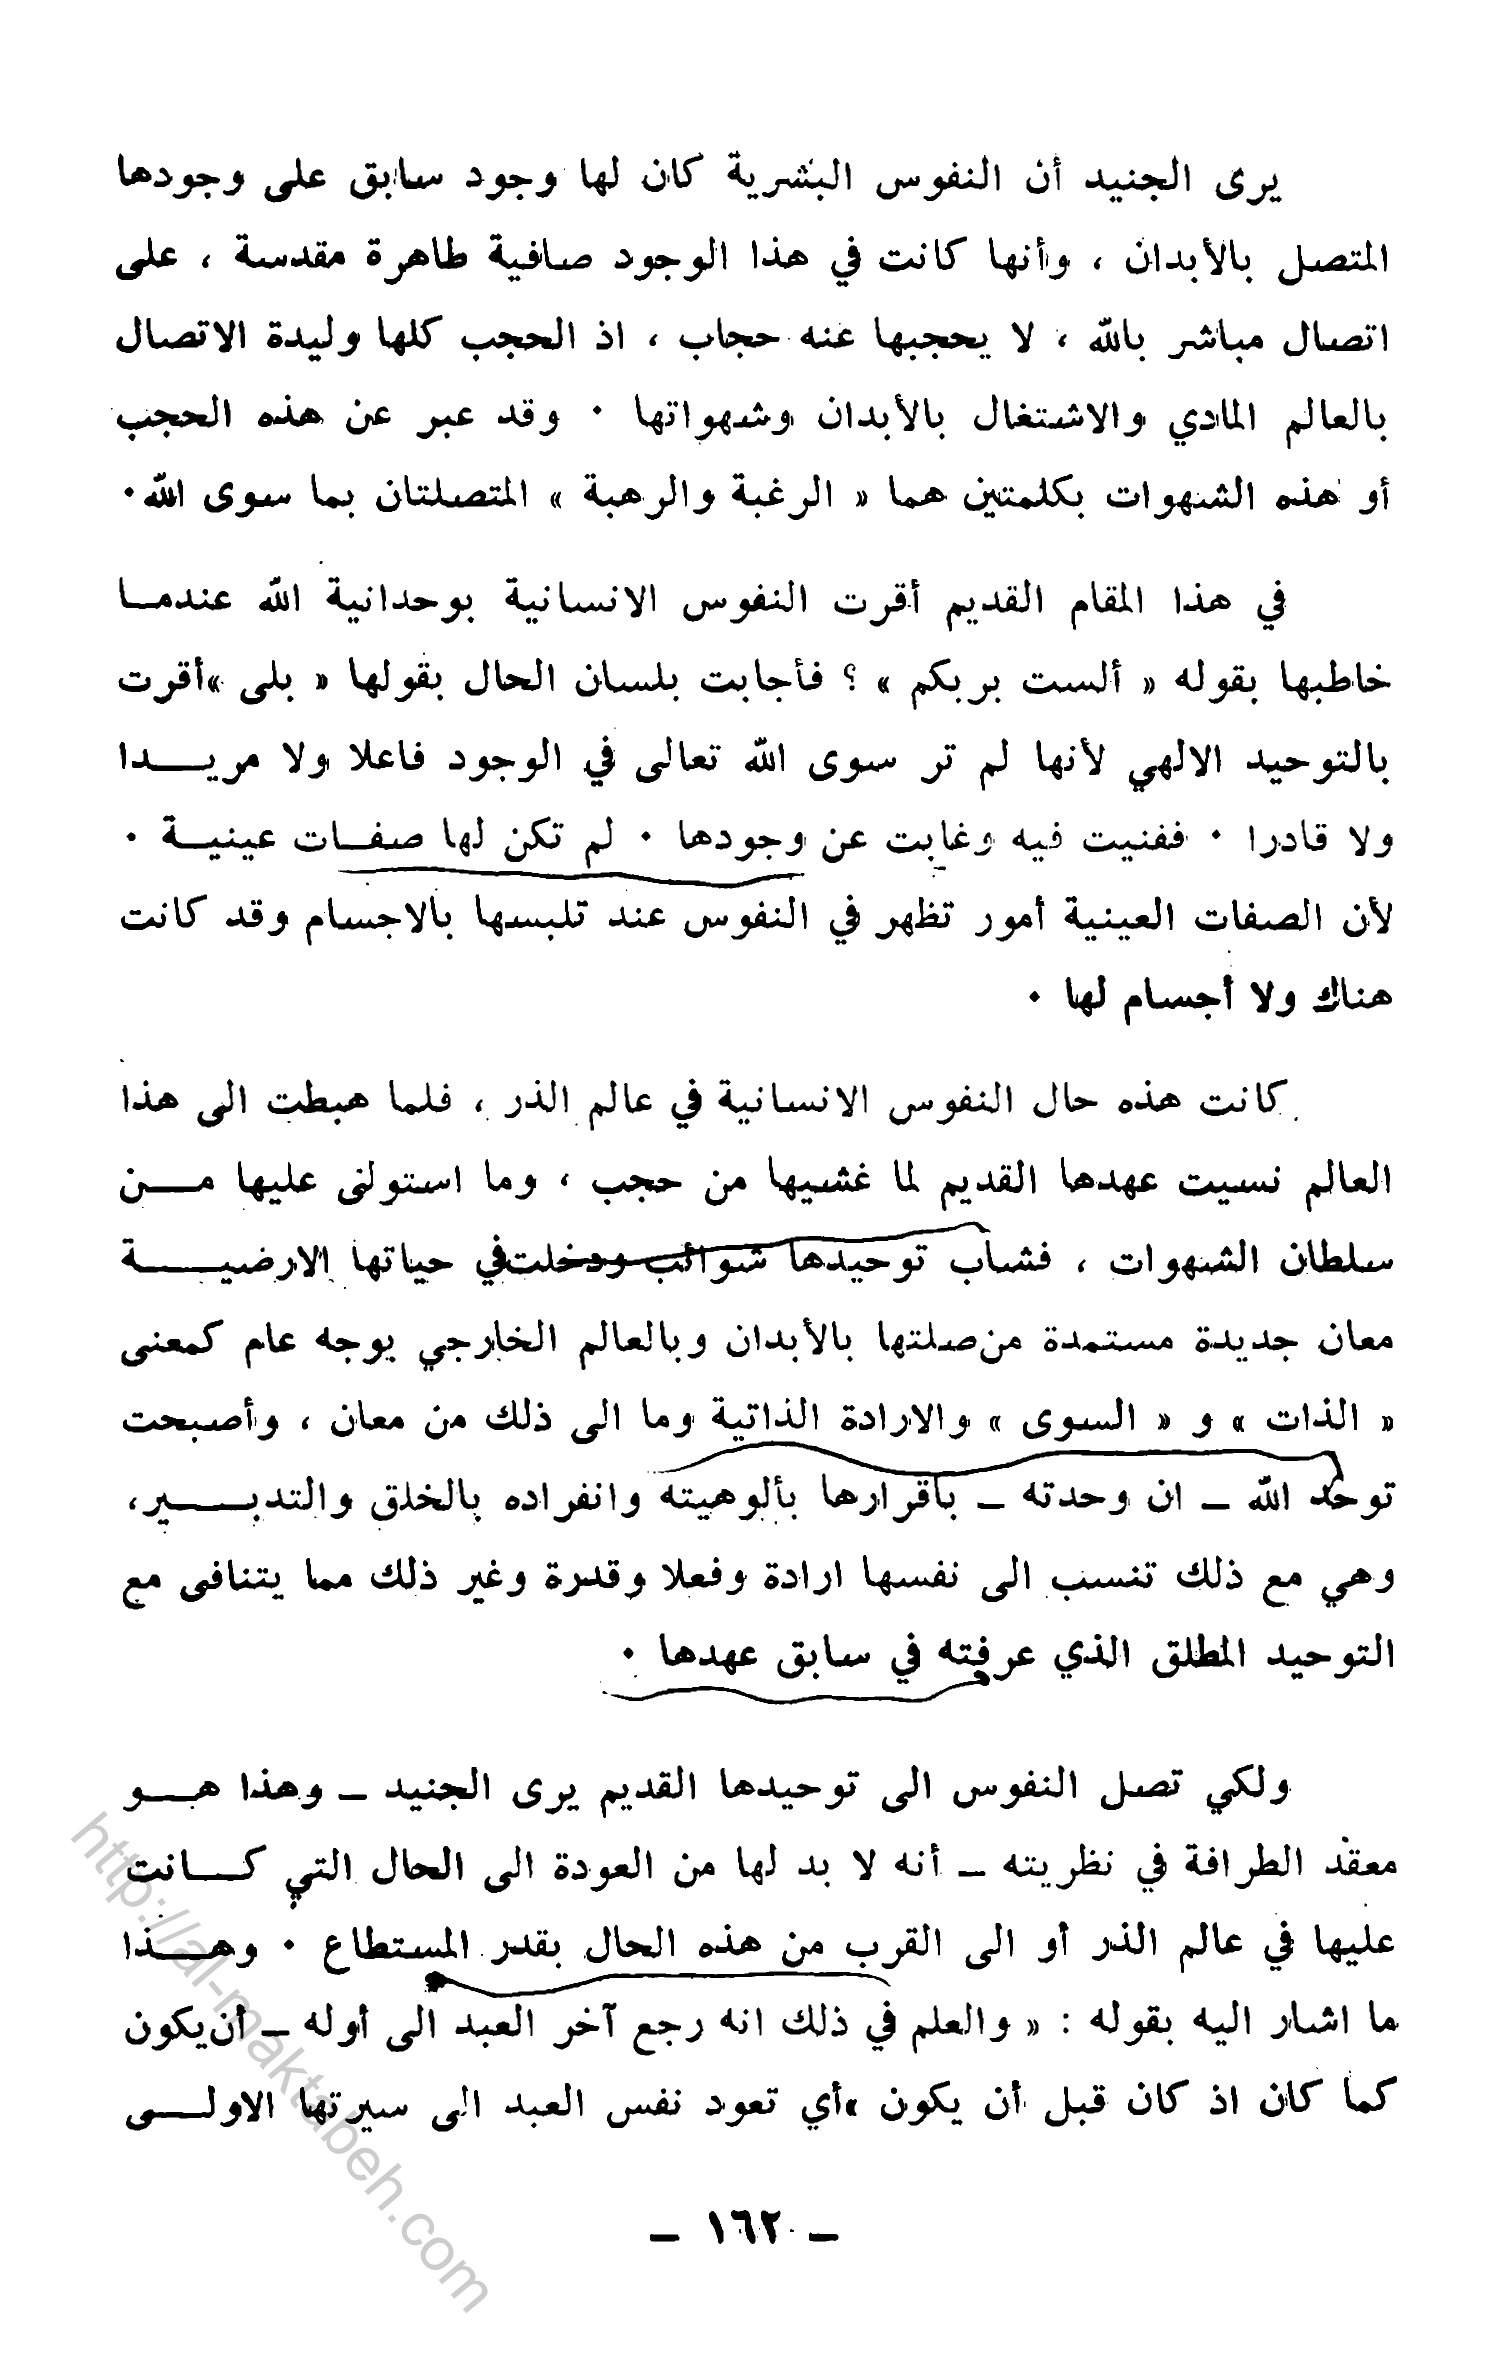 يرى الجنيد أن النفوس البشرية كان لها وجود سابق على وجودها
المتصل بالأبدان ، وأنها كانت في هذا الوجود صافية طاهرة مقدسة ، على
اتصال مباشر بالله ، لا يحجبها عنه حجاب ، اذ الحجب كلها وليدة الاتصال
بالعالم المادي والاشتغال بالأبدان وشهواتها ٠ وقد عبر عن هذه الحجب
أو هذه الشهوات بكلمتين هما « الرغبة والرهبة » المتصلتان بما سوى الله٠
في هذا المقام القديم أقرت النفوس الانسانية بوحدانية الله عندمـا
خاطبها بقوله « ألست بربكم » ؟ فأجابت بلسان الحال بقولها « بلى »أقرت
بالتوحيد الالهي لأنها لم تر سوى الله تعالى في الوجود فاعلا ولا مريـــدا
ولا قادرا ٠ ففنيت فيه وغابت عن وجودها ٠ لم تكن لها صفـات عينيـة ٠
لأن الصفات العينية أمور تظهر في النفوس عند تلبسها بالاجسام وقد كانت
هناك ولا أجسام لها ٠
كانت هذه حال النفوس الانسانية في عالم الذر ، فلما هبطت الى هذا
العالم نسيت عهدها القديم لما غشيها من حجب ، وما استولى عليها مــن
سلطان الشهوات ، فشاب توحيدها شوائب ودخلت في حياتها الارضيــــة
معان جديدة مستمدة من صلتها بالأبدان وبالعالم الخارجي بوجه عام كمعنى
« الذات » و « السوى » والارادة الذاتية وما الى ذلك من معان ، وأصبحت
توحد الله ـ ان وحدته ـ باقرارها بألوهيته وانفراده بالخلق والتدبـــير،
وهي مع ذلك تنسب الى نفسها ارادة وفعلا وقدرة وغير ذلك مما يتنافى مع
التوحيد المطلق الذي عرفته في سابق عهدها ٠
ولكي تصل النفوس الى توحيدها القديم يرى الجنيد ـ وهذا هــو
معقد الطرافة في نظريته ـ أنه لا بد لها من العودة الى الحال التي كـــانت
عليها في عالم الذر أو الى القرب من هذه الحال بقدر المستطاع ٠ وهـــذا
ما اشار اليه بقوله : « والعلم في ذلك انه رجع آخر العبد الى أوله ـ أن يكون
كما كان اذ كان قبل أن يكون »أي تعود نفس العبد الى سيرتها الاولــى
ـ ١٦٢ ـ
http://al-maktabeh.com